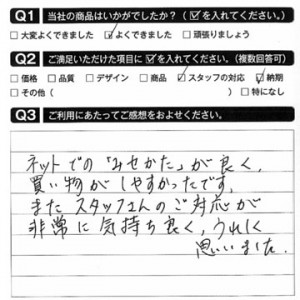 Q1 当社の商品はいかがでしたか？（☑を入れてください。）
□大変よくできました ☑よくできました □頑張りましょう
Q2 ご満足いただけた項目に☑を入れてください。（複数回答可）
□価格 □品質 □デザイン □商品 ☑スタッフの対応 ☑納期
□その他（ ）□特になし
Q3 ご利用にあたってご感想をおよせください。
ネットでの「みせかた」が良く、
買い物がしやすかったです。
またスタッフさんのご対応が
非常に気持ち良く、うれしく
思いいました。